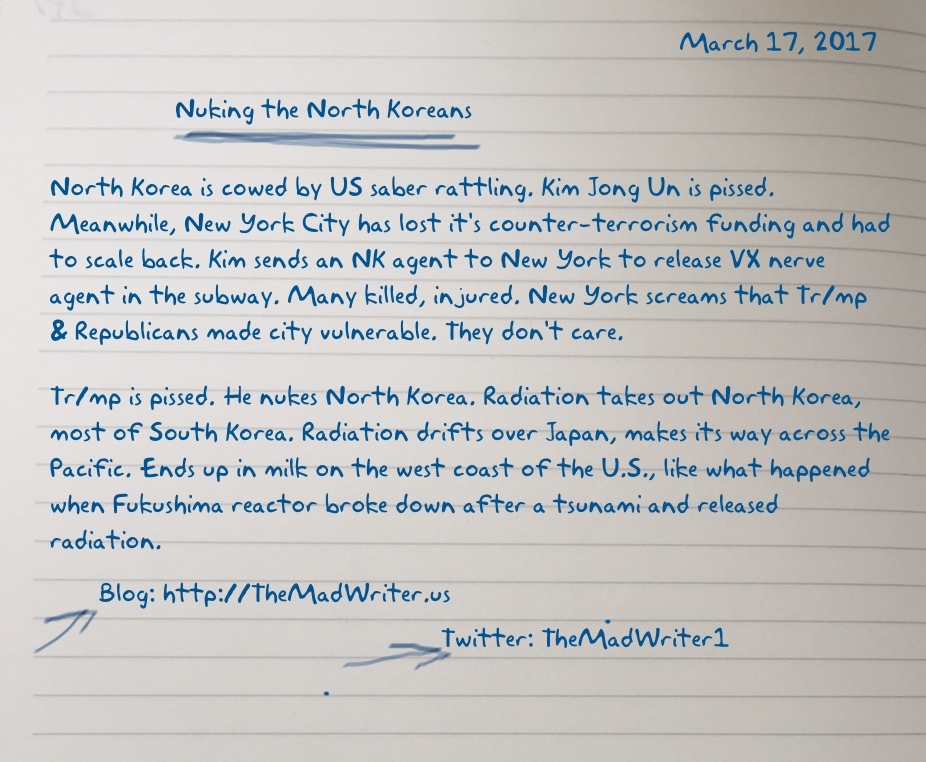 March 17, 2017
Nuking the North Koreans
North Korea is cowed by US saber rattling. Kim Jong Un is pissed.
Meanwhile, New York City has lost it's counter-terrorism funding and had
to scale back. Kim sends an NK agent to New York to release VX nerve
agent in the subway. Many killed, injured. New York screams that Tr/mp
& Republicans made city vulnerable. They don't care.
Tr/mp is pissed. He nukes North Korea. Radiation takes out North Korea,
most of South Korea. Radiation drifts over Japan, makes its way across the
Pacific. Ends up in milk on the west coast of the U.S., like what happened
when Fukushima reactor broke down after a tsunami and released
radiation.
Blog: http://TheMadWriter.us
Twitter: TheMadWriter1